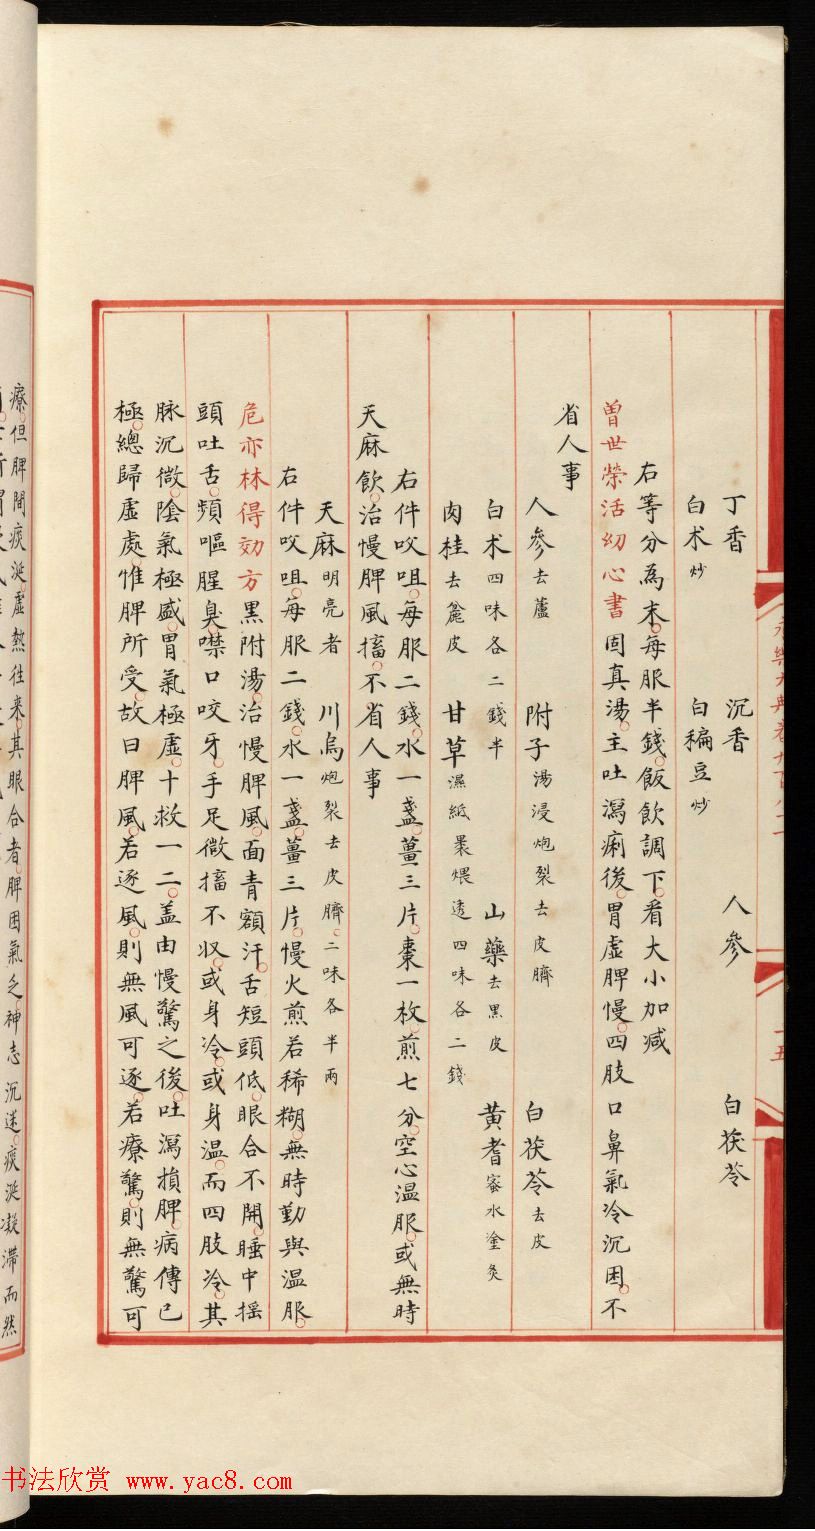 永樂大典卷九百八十
十五
丁香 沉香 人參 白茯苓
白术炒 白稨豆炒
右等分為末每服半錢飯飲調下看大小加減
曽世榮活幼心書固真湯主吐瀉痢後胃虛脾慢四肢口鼻氣冷沉困不
省人事
人參去蘆 附子湯浸炮裂去皮臍 白茯苓去皮
白术四味各二錢半 山藥去黑皮 黃耆蜜水塗炙
肉桂去麄皮 甘草濕紙褁煨透四味各二錢
右件㕮咀每服二錢水一盞薑三片棗一枚煎七分空心温服或無時
天麻飲治慢脾風搐不省人事
天麻明亮者 川烏炮裂去皮臍二味各半兩
右件㕮咀每服二錢水一盞薑三片慢火煎若稀糊無時勤與温服
危亦林得効方黑附湯治慢脾風面青額汗舌短頭低眼合不開睡中揺
頭吐舌頻嘔腥臭噤口咬牙手足微搐不収或身冷或身温而四肢冷其
脉沉微陰氣極盛胃氣極虛十救一二蓋由慢驚之後吐瀉損脾病傳已
極總歸虛處惟脾所受故曰脾風若逐風則無風可逐若療驚則無驚可
療但脾間痰涎虛熱往来其眼合者脾困氣乏神志沉迷痰涎凝滯而然
书法欣赏 www.yac8.com